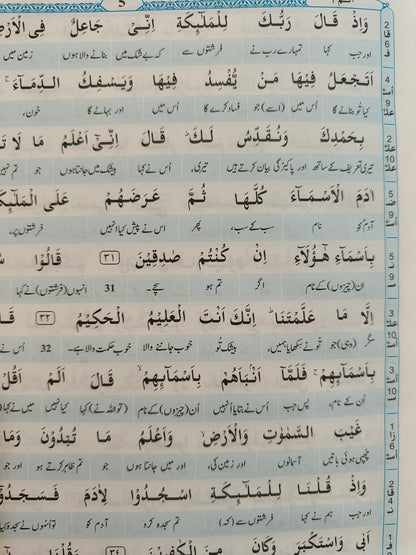 5
وَاِذْ قَالَ رَبُّكَ لِلْمَلٰٓئِكَةِ اِنِّیْ جَاعِلٌ فِی الْاَرْضِ
اور جب کہا تمہارے رب نے فرشتوں سے کہ بےشک میں بنانے والا ہوں زمین میں
اَتَجْعَلُ فِیْهَا مَنْ یُّفْسِدُ فِیْهَا وَیَسْفِكُ الدِّمَآءَ ۚ
کیا تو بنائے گا اُس میں (اسے) جو فساد کرے گا اُس میں اور بہائے گا خون،
بِحَمْدِكَ وَنُقَدِّسُ لَكَ ؕ قَالَ اِنِّیْۤ اَعْلَمُ مَا لَا
تیری تعریف کے ساتھ اور پاکیزگی بیان کرتے ہیں تیری، اُس نے کہا بیشک میں جانتا ہوں جو تم نہیں
اٰدَمَ الْاَسْمَآءَ كُلَّهَا ثُمَّ عَرَضَهُمْ عَلَی الْمَلٰٓئِكَةِ
آدم کو نام سب کے سب، پھر اُس نے پیش کیا انہیں فرشتوں پر،
بِاَسْمَآءِ هٰۤؤُلَآءِ اِنْ كُنْتُمْ صٰدِقِیْنَ ﴿۳۱﴾ قَالُوْا
اِن (چیزوں) کے نام اگر تم ہو سچے۔ 31 انہوں (فرشتوں) نے کہا
اِلَّا مَا عَلَّمْتَنَا ؕ اِنَّكَ اَنْتَ الْعَلِیْمُ الْحَكِیْمُ ﴿۳۲﴾
مگر (وہی) جو تُو نے سکھایا ہمیں، بیشک تُو خوب جاننے والا خوب حکمت والا ہے۔ 32 اُس نے
بِاَسْمَآئِهِمْ ۚ فَلَمَّاۤ اَنْۢبَاَهُمْ بِاَسْمَآئِهِمْ ۙ قَالَ اَلَمْ اَقُلْ
اُن کے نام، پس جب اُس نے بتا دیے انہیں اُن (چیزوں) کے نام (تو اللہ نے) کہا کیا نہیں میں نے کہا
غَیْبَ السَّمٰوٰتِ وَالْاَرْضِ ۙ وَاَعْلَمُ مَا تُبْدُوْنَ وَمَا
چھپی ہوئی باتیں آسمانوں اور زمین کی، اور میں جانتا ہوں جو تم ظاہر کرتے ہو اور جو
وَاِذْ قُلْنَا لِلْمَلٰٓئِكَةِ اسْجُدُوْا لِاٰدَمَ فَسَجَدُوْۤا
اور جب ہم نے کہا فرشتوں سے (کہ) تم سجدہ کرو آدم کو تو اُنہوں نے سجدہ کیا
اَبٰی وَاسْتَكْبَرَ ٭۫ وَكَانَ مِنَ الْكٰفِرِیْنَ ﴿۳۴﴾ وَقُلْنَا